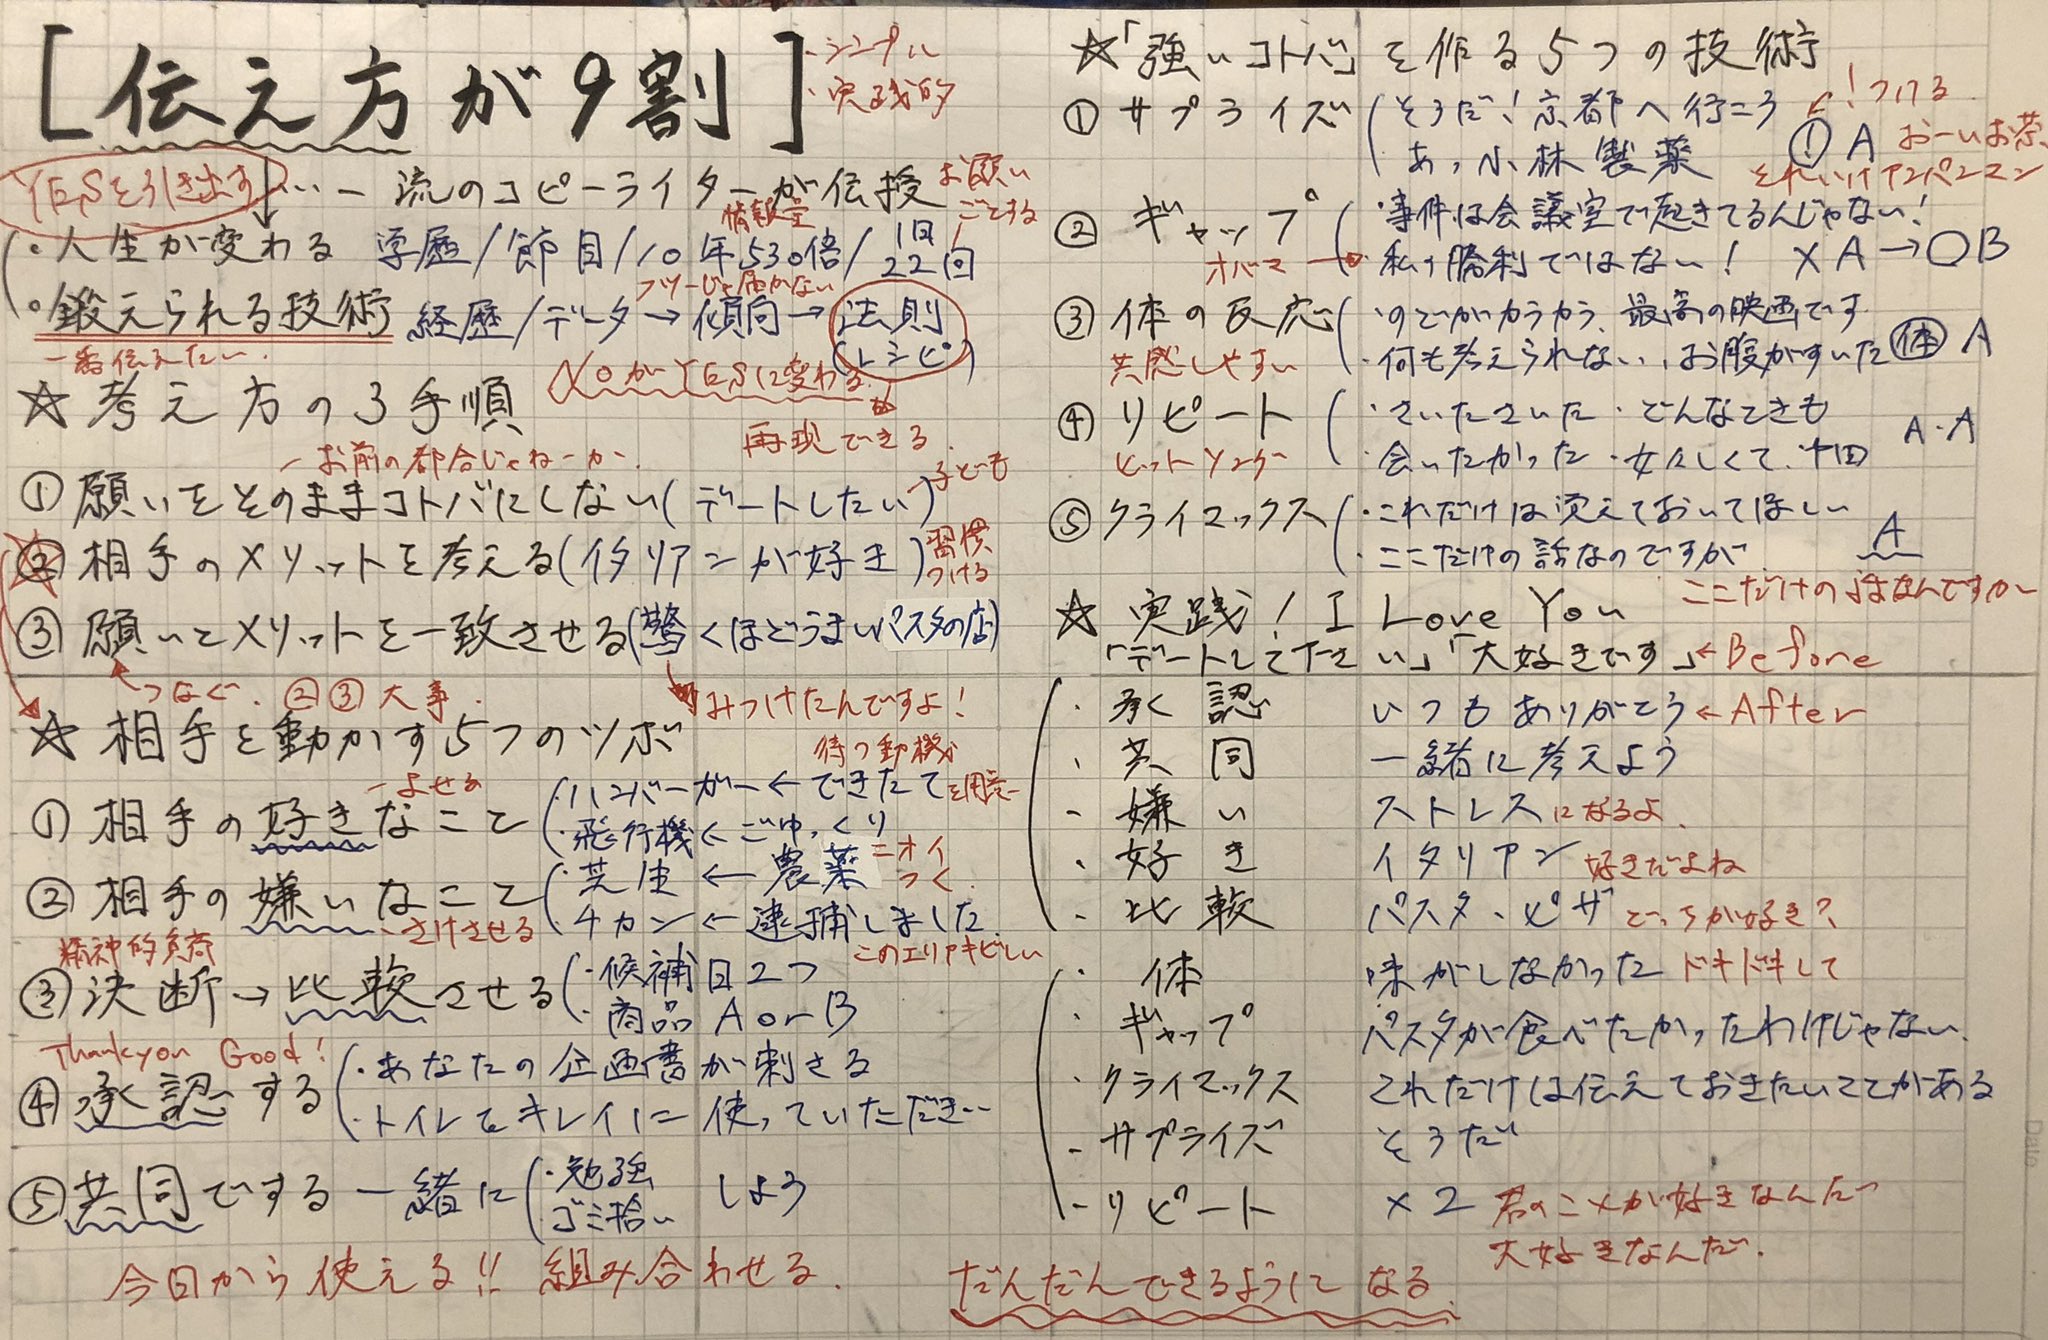 [伝え方が9割]
・シンプル
・実践的
YESを引き出す
…一流のコピーライターが伝授
お願い
ごとする
・人生が変わる 学歴/節目/10年530倍/1日22回
情報量
フツーじゃ届かない
・鍛えられる技術 経歴/データ→傾向→法則
(レシピ)
一番伝えたい.
NOがYESに変わる
再現できる.
☆考え方の3手順
お前の都合じゃねーか.
①願いをそのままコトバにしない(デートしたい)
子ども
②相手のメリットを考える(イタリアンが好き)
習慣
つける
③願いとメリットを一致させる(驚くほどうまいパスタの店)
つなぐ. ②③大事.
みつけたんですよ!
☆相手を動かす5つのツボ
よせる
待つ動機が
①相手の好きなこと
・ハンバーガー←できたてを用意
・飛行機←ごゆっくり
②相手の嫌いなこと
さけさせる
・芝生←農薬
ニオイ
つく.
チカン←逮捕しました
このエリアキビしい
精神的負荷
③決断→比較させる
・候補日2つ
・商品AorB
Thankyou Good!
④承認する
・あなたの企画書が刺さる
・トイレをキレイに使っていただき…
⑤共同でする 一緒に
・勉強
・ゴミ拾い
しよう
今日から使える!! 組み合わせる.
だんだんできるようになる
☆「強いコトバ」を作る5つの技術
①サプライズ
そうだ!京都へ行こう
あっ小林製薬
!つける
① A おーいお茶
それいけアンパンマン
②ギャップ
・事件は会議室で起きてるんじゃない!
オバマ→
・私の勝利ではない! ×A→○B
③体の反応
・のどがカラカラ、最高の映画です
・何も考えられない、お腹がすいた
体 A
共感しやすい
④リピート
・さいたさいた・どんなときも
・会いたかった・女々しくて、
A・A
ヒットソング
⑤クライマックス
・これだけは覚えておいてほしい
・ここだけの話なのですが
A
ここだけの話なんですが
☆実践! I Love You
「デートして下さい」「大好きです」←Before
・承認 いつもありがとう←After
・共同 一緒に考えよう
・嫌い ストレスになるよ.
・好き イタリアン好きだよね
・比較 パスタ・ピザどっちが好き?
・体 味がしなかったドキドキして
・ギャップ パスタが食べたかったわけじゃない.
・クライマックス これだけは伝えておきたいことがある
・サプライズ そうだ
・リピート ×2 君のことが好きなんだっ
大好きなんだ.